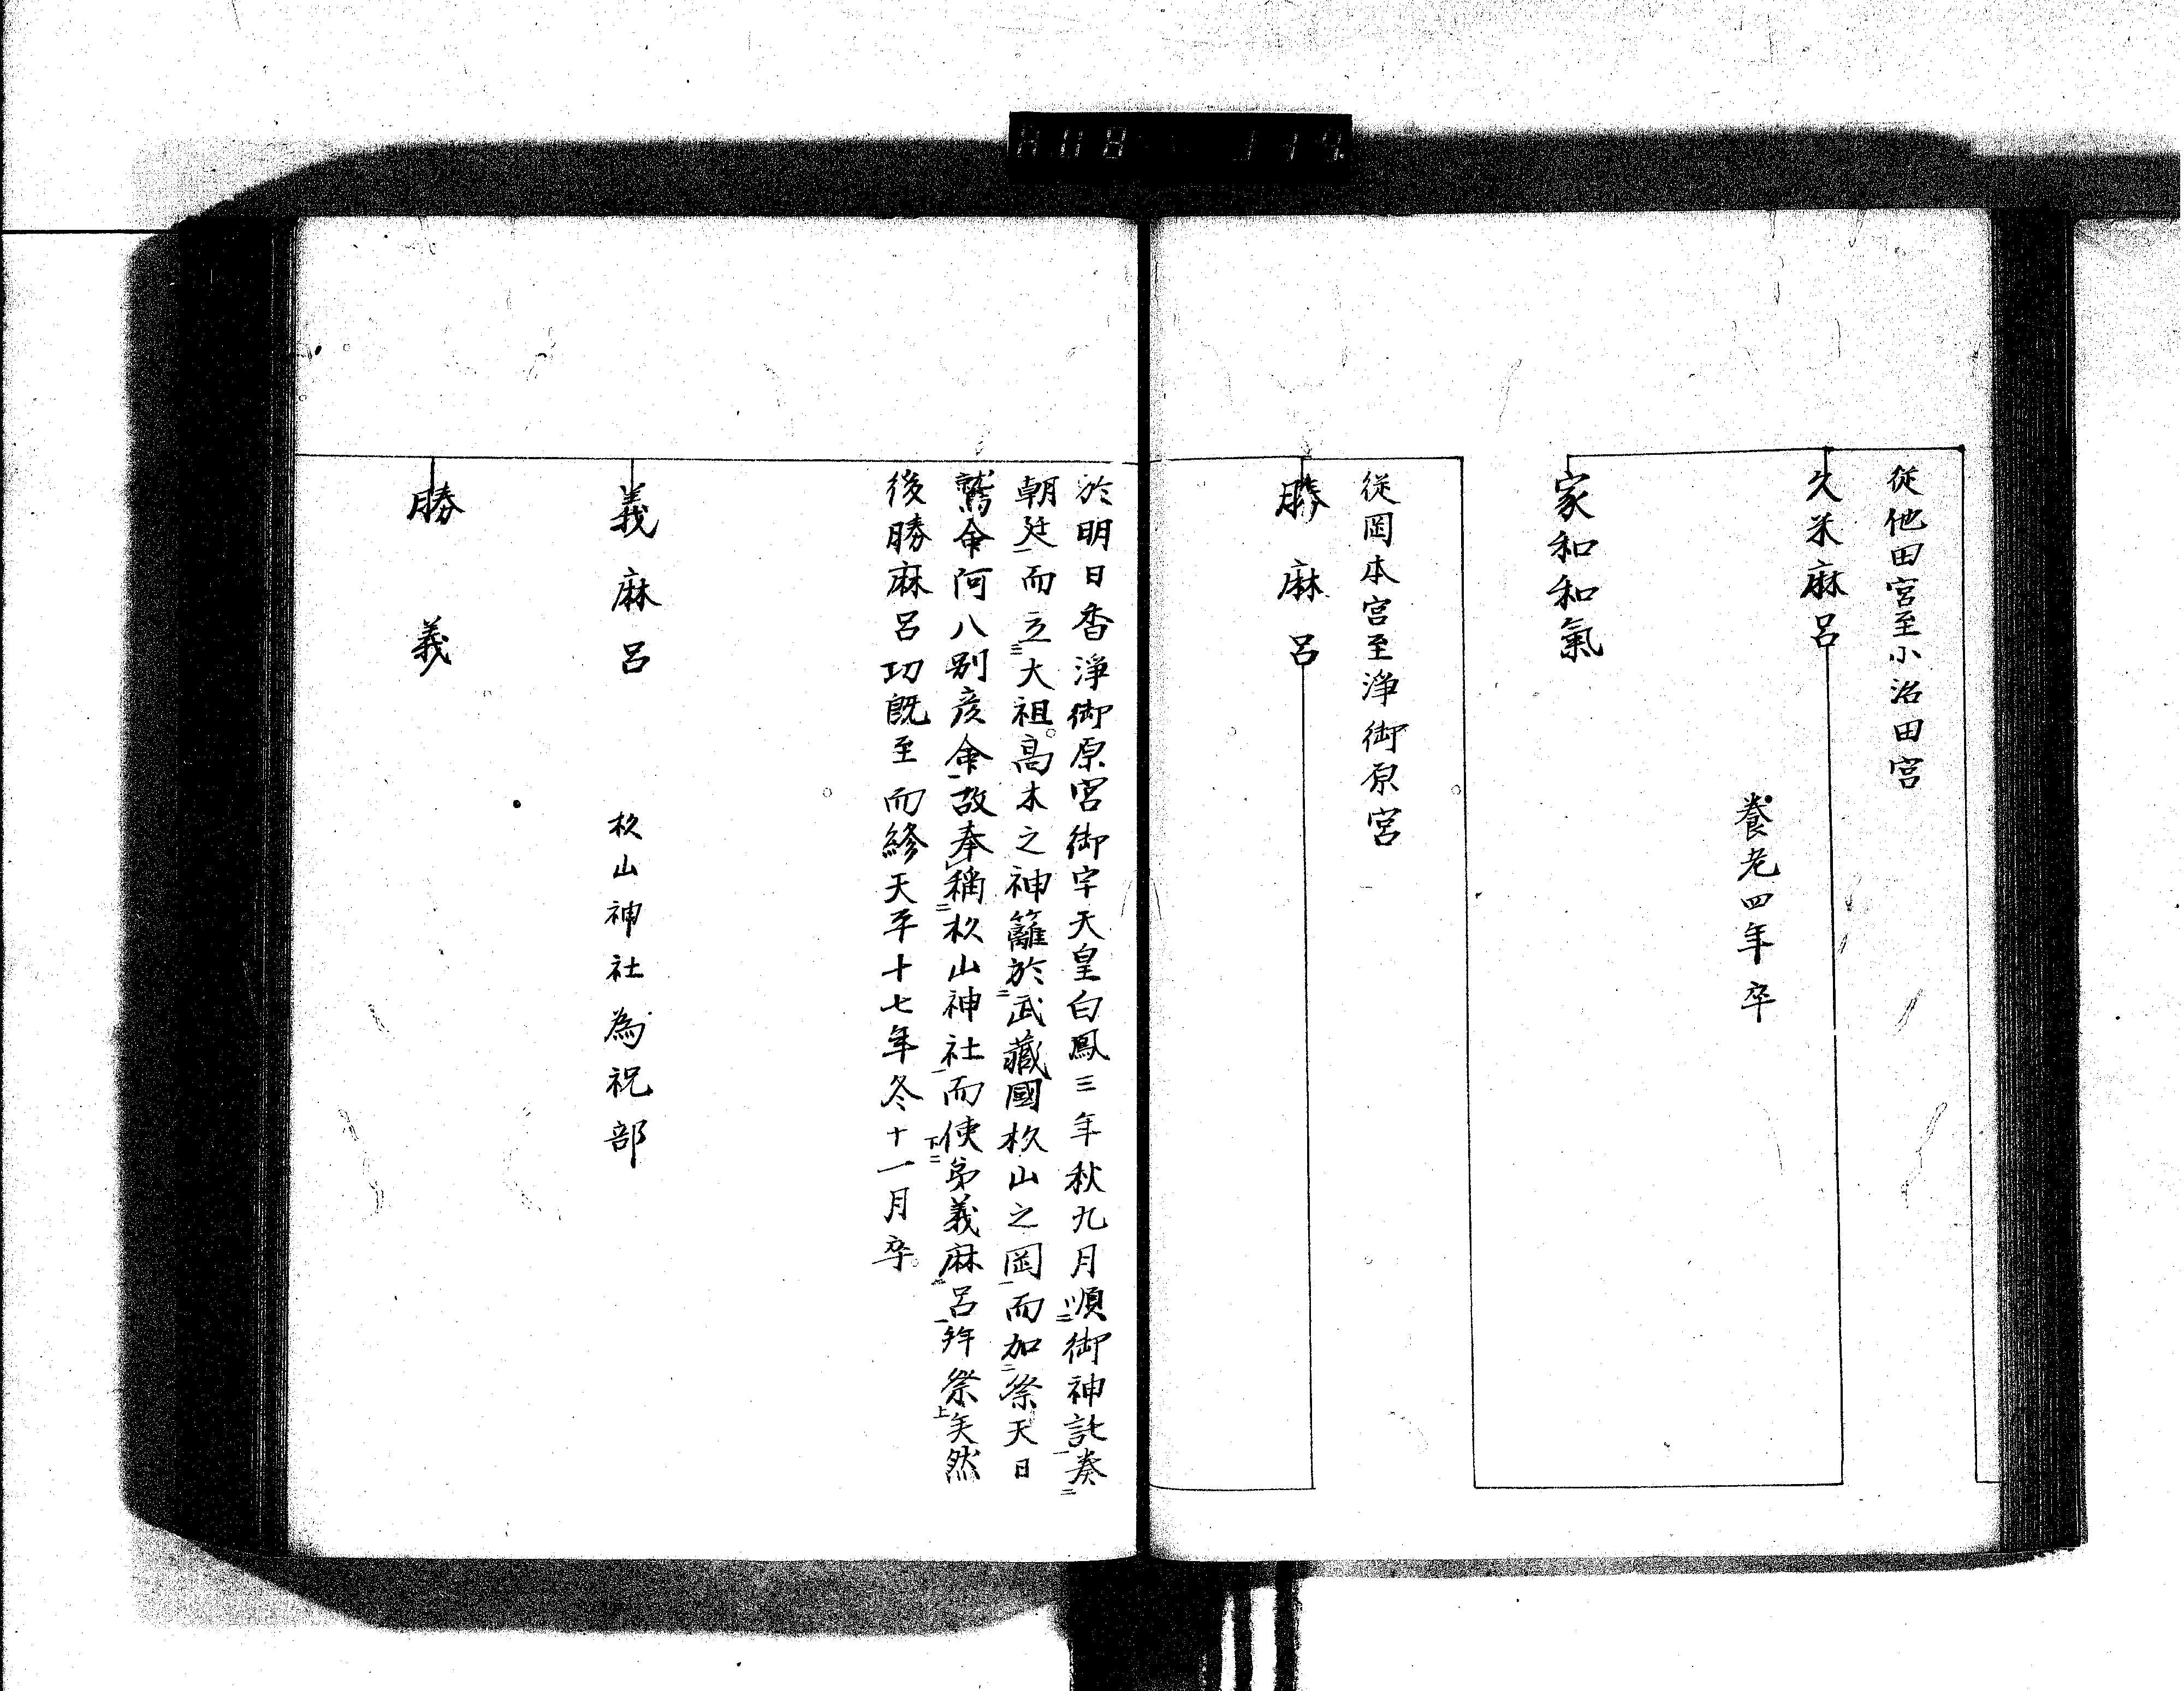 從他田宮至小治田宮
久米麻呂
養老四年卒
家和和氣
從岡本宮至浄御原宮
勝麻呂
於明日香淨御原宮御宇天皇白鳳三年秋九月順御神託奏
朝廷而立大祖高木之神籬於武藏國杦山之岡而加祭天日
鷲命阿八别彦命故奉稱杦山神社而使弟義麻呂拜祭矣然
後勝麻呂功既至而終天平十七年冬十一月卒
義麻呂
杦山神社為祝部
勝義